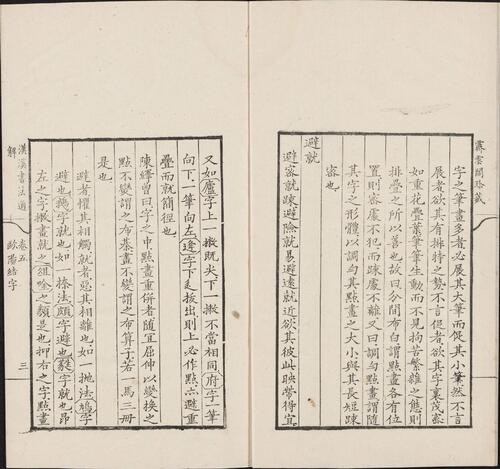 霋雲閣珍藏
字之筆畫多者必展其大筆而促其小筆然不言
展者欲其有排特之勢不言促者欲其字裏茂密
如重花疊葉筆筆生動而不見拘苦繁雜之態則
排疊之所以善也故曰分間布白謂點畫各有位
置則密處不犯而疎處不離又曰調勻點畫謂隨
其字之形體以調勻其點畫之大小與其長短疎
密也
避就
避密就疎避險就易避遠就近欲其彼此映帶得宜
又如廬字上一撇既尖下一撇不當相同府字一筆
向下一筆向左逢字下辵拔出則上必作點亦避重
疊而就簡徑也
陳繹曾曰字之中點畫重併者隨宜屈伸以變換之
點不變謂之布棊畫不變謂之布算子若一馬三冊
是也
避者懼其相觸就者惡其相離也如一拋法鳩字
避也字就也如一捺法字避也字就也昂
左之字撇畫就之之類是也抑右之字點畫
漢溪書法通解
卷五
歐陽結字
三